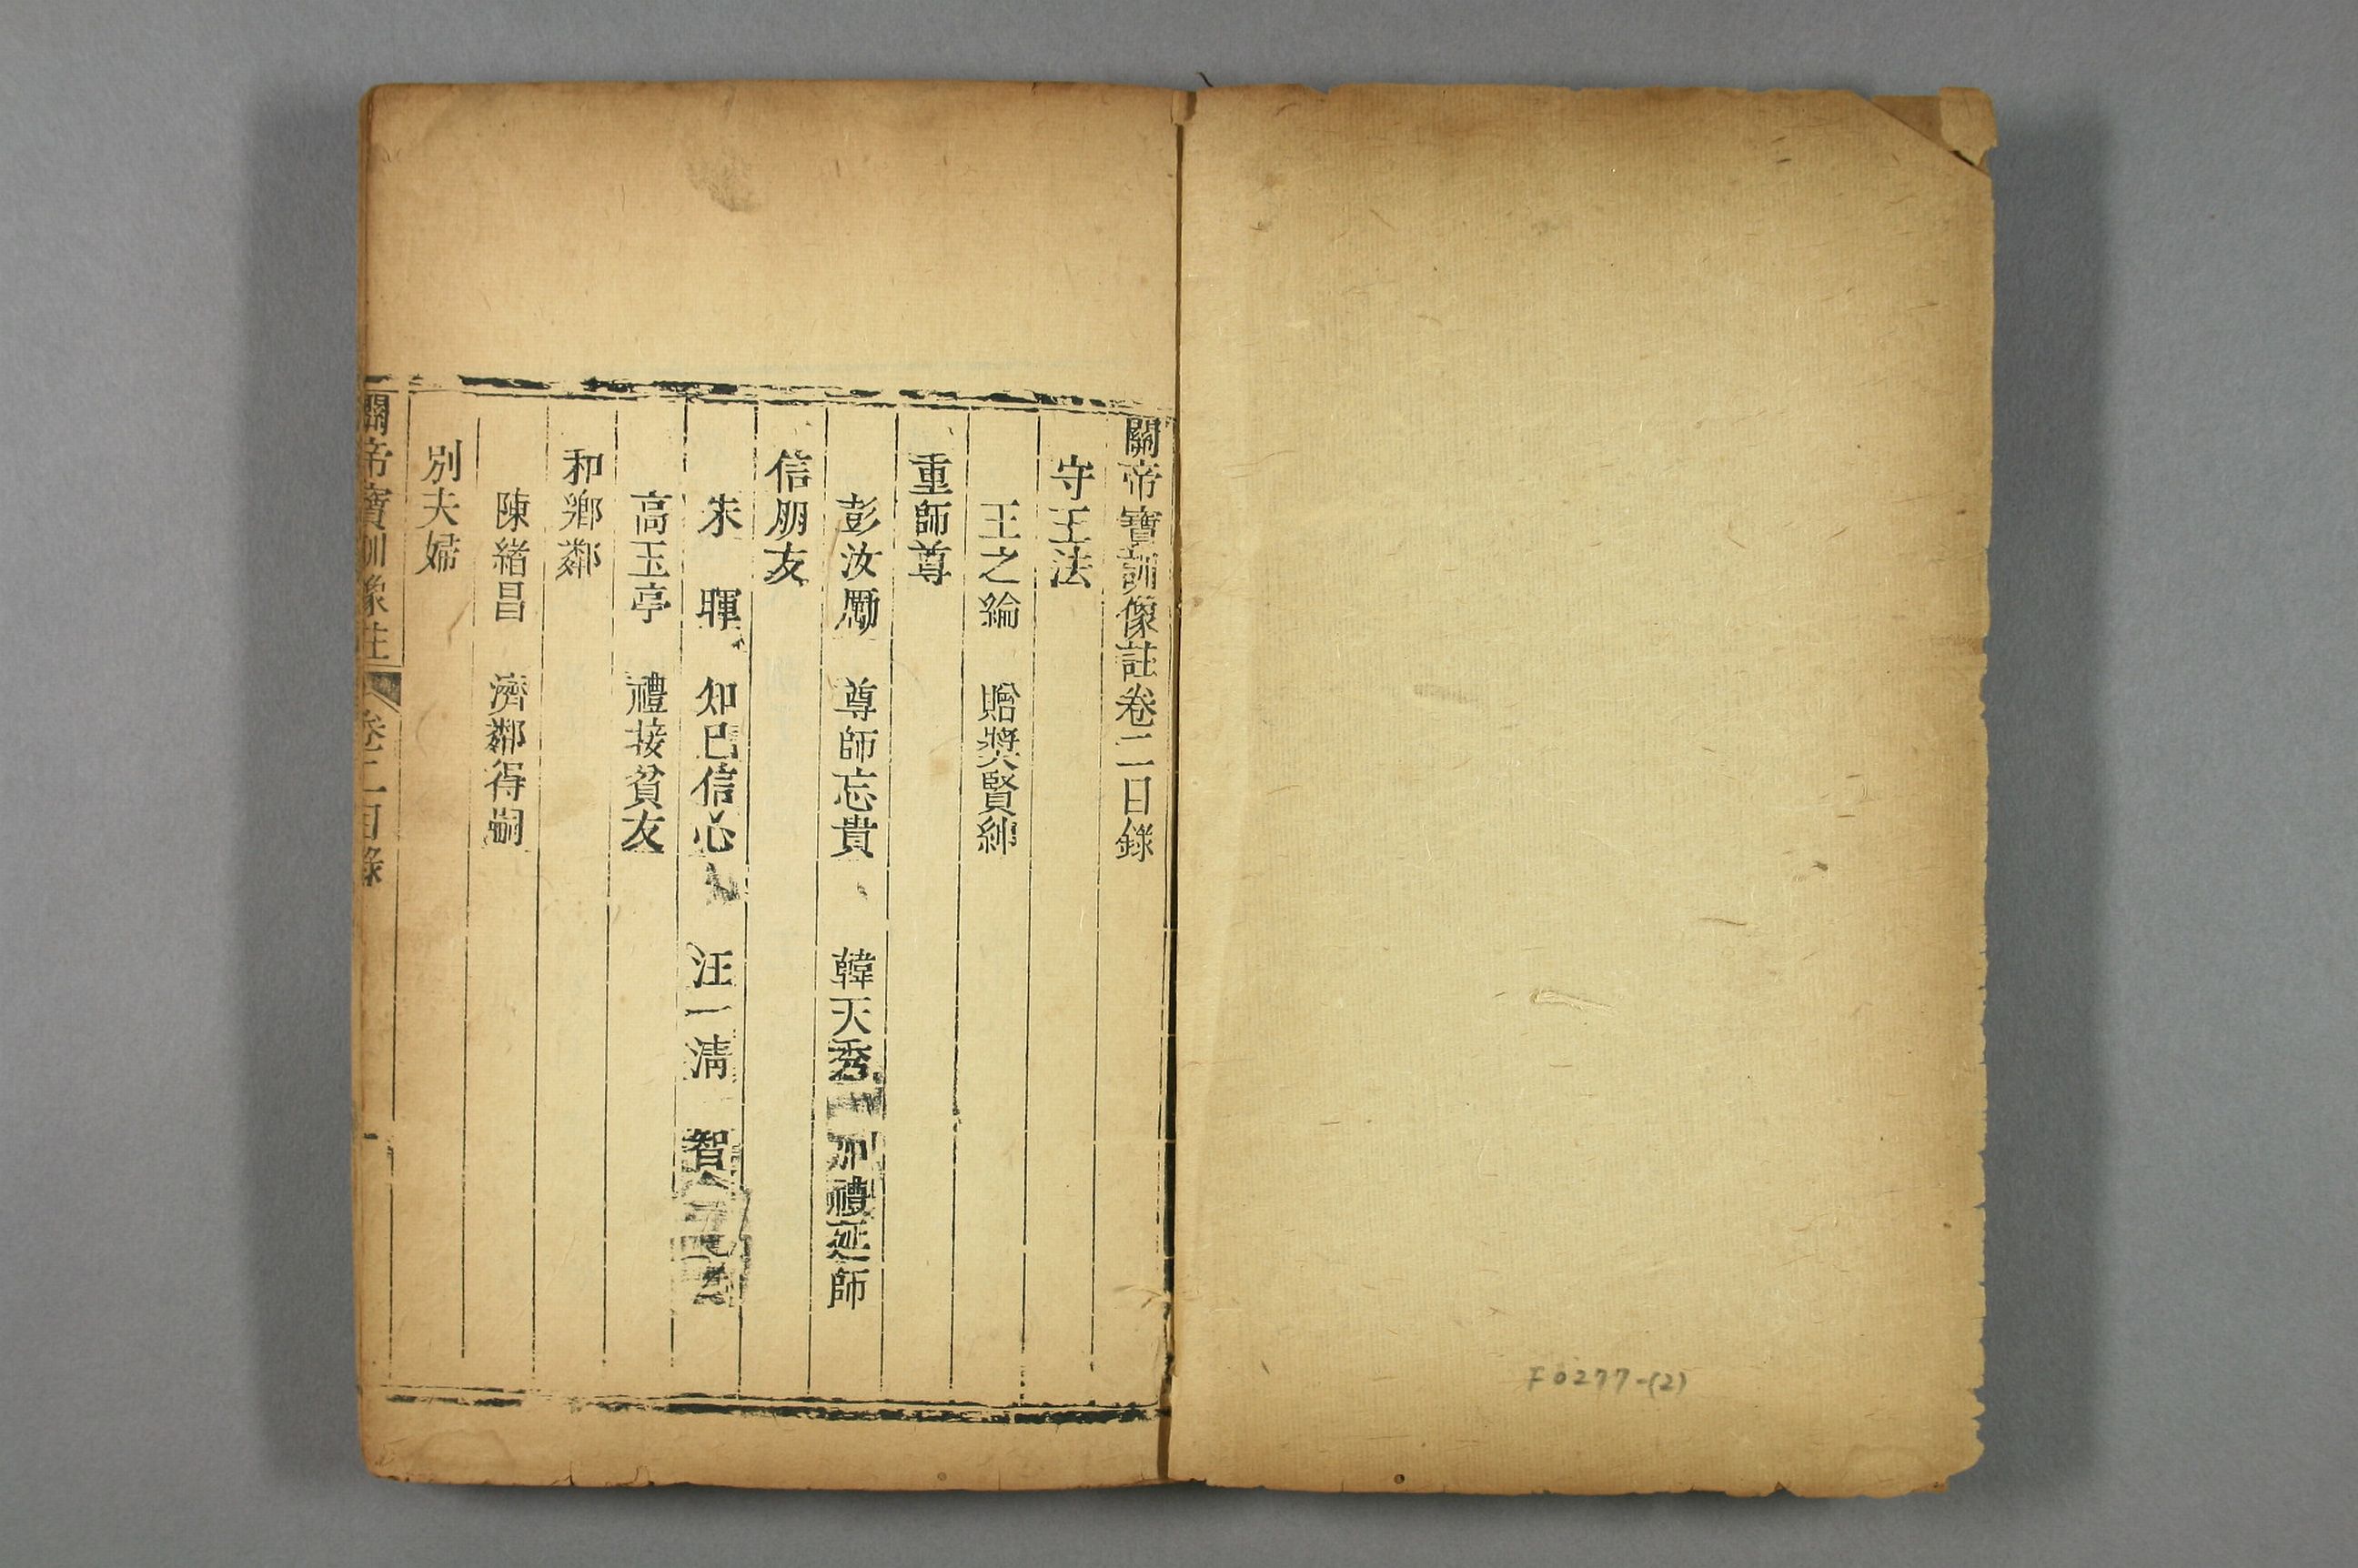 關帝寶訓像註卷二目錄
守王法
王之綸　贈獎賢紳
重師尊
彭汝勵　尊師忘貴　韓天秀　加禮延師
信朋友
朱　暉　知已信心　汪一淸　智
高玉亭　禮接貧友
和鄉鄰
陳緒昌　濟鄰得嗣
別夫婦
關帝寶訓像註　卷二目錄　一
F0277-(2)